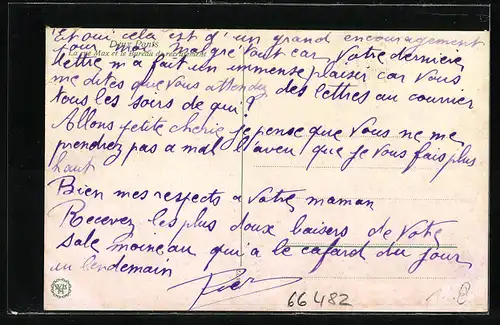 Et oui cela est d'un grand encouragement
pour moi malgré tout car votre dernière
Deux Ponts
La rue Max et le Bureau de recrutement
lettre m'a fait un immense plaisir car vous
me dites que vous attendez des lettres au courrier
tous les soirs de qui?
Allons petite cherie je pense que vous ne me
prendrez pas a mal l'aveu que je vous fais plus
haut
Bien mes respects a votre maman
Recevez les plus doux baisers de votre
sale moineau qui a le cafard du jour
au lendemain
66482